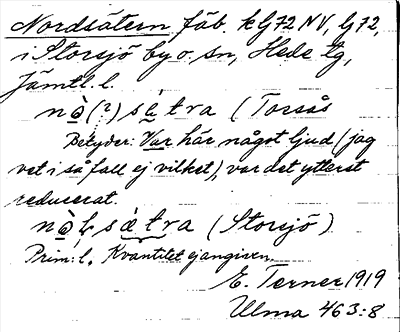 Nordsätern fäb. kG72 NV, G72,
i Storsjö by o. sn, Hede tg,
Jämtl. l.
nò̱(?) sè̱tra (Torsås
Betyder: Var här något ljud (jag
vet i så fall ej vilket), var det ytterst
reducerat.
nò̱ḷsè̱tra (Storsjö)
Prim: l. Kvantitet ej angiven.
E. Terner 1919
Ulma 463:8